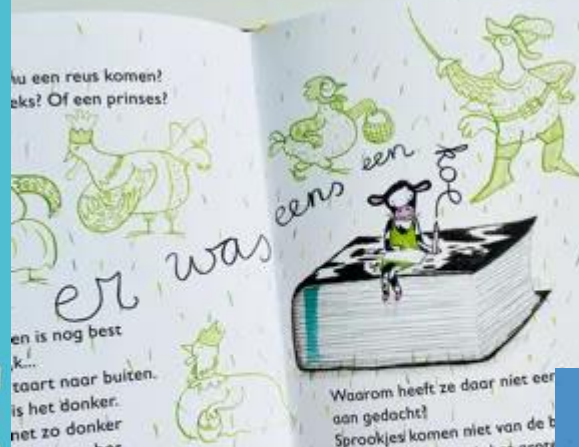 nu een reus komen?
eks? Of een prinses?
er was eens een koe
en is nog best
k...
taart naar buiten.
is het donker.
net zo donker
Waarom heeft ze daar niet eer
aan gedacht?
Sprookjes komen niet van de b